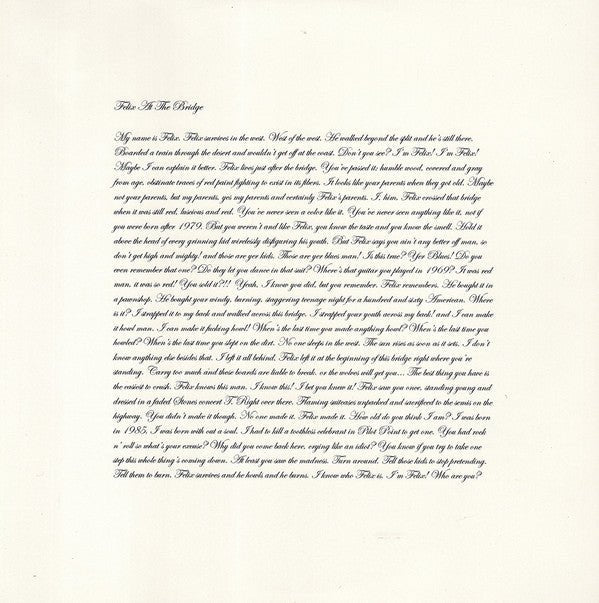 Felix At The Bridge
My name is Felix. Felix survives in the west. West of the west. He walked beyond the split and he's still there.
Boarded a train through the desert and wouldn't get off at the coast. Don't you see? I'm Felix! I'm Felix!
Maybe I can explain it better. Felix lives just after the bridge. You've passed it; humble wood, covered and gray
from age, obstinate traces of red paint fighting to exist in its fibers. It looks like your parents when they got old. Maybe
not your parents, but my parents, yes my parents and certainly Felix's parents. I, him, Felix crossed that bridge
when it was still red, luscious and red. You've never seen a color like it. You've never seen anything like it, not if
you were born after 1979. But you weren't and like Felix, you know the taste and you know the smell. Hold it
above the head of every grinning kid wirelessly disfiguring his youth. But Felix says you ain't any better off man, so
don't get high and mighty! and those are yer kids. Those are yer blues man! Is this true? Yer Blues! Do you
even remember that one? Do they let you dance in that suit? Where's that guitar you played in 1969? It was red
man, it was so red! You sold it?!!! Yeah, I know you did, but you remember. Felix remembers. He bought it in
a pawnshop. He bought your windy, burning, staggering teenage night for a hundred and sixty American. Where
is it? I strapped it to my back and walked across this bridge. I strapped your youth across my back! and I can make
it howl man. I can make it fucking howl! When's the last time you made anything howl? When's the last time you
howled? When's the last time you slept on the dirt. No one sleeps in the west. The sun rises as soon as it sets. I don't
know anything else besides that. I left it all behind. Felix left it at the beginning of this bridge right where you're
standing. Carry too much and these boards are liable to break, or the wolves will get you... The best thing you have is
the easiest to crush. Felix knows this man. I know this! I bet you knew it! Felix saw you once, standing young and
dressed in a faded Stones concert T. Right over there. Flaming suitcases unpacked and sacrificed to the semis on the
highway. You didn't make it though. No one made it. Felix made it. How old do you think I am? I was born
in 1985. I was born with out a soul. I had to kill a toothless celebrant in Pilot Point to get one. You had rock
n' roll so what's your excuse? Why did you come back here, crying like an idiot? You know if you try to take one
step this whole thing's coming down. At least you saw the madness. Turn around. Tell those kids to stop pretending.
Tell them to burn. Felix survives and he howls and he burns. I know who Felix is. I'm Felix! Who are you?